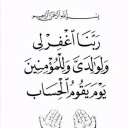 بسم الله الرحمن الرحيم
رَبَّنَا اغْفِرْ لِي
وَلِوَالِدَيَّ وَلِلْمُؤْمِنِينَ
يَوْمَ يَقُومُ الْحِسَابُ